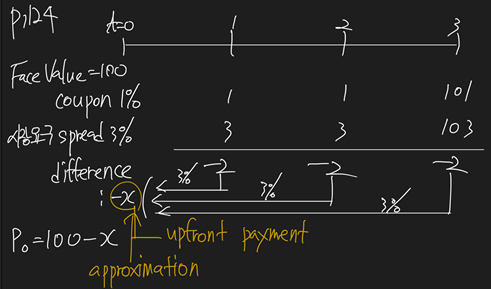 P.124 t=0 1 2 3
Face Value=100
coupon 1% 1 1 101
spread 3% 3 3 103
difference -2 -2 -2
: -x ( 3% 3% 3%
P₀=100-x upfront payment
approximation